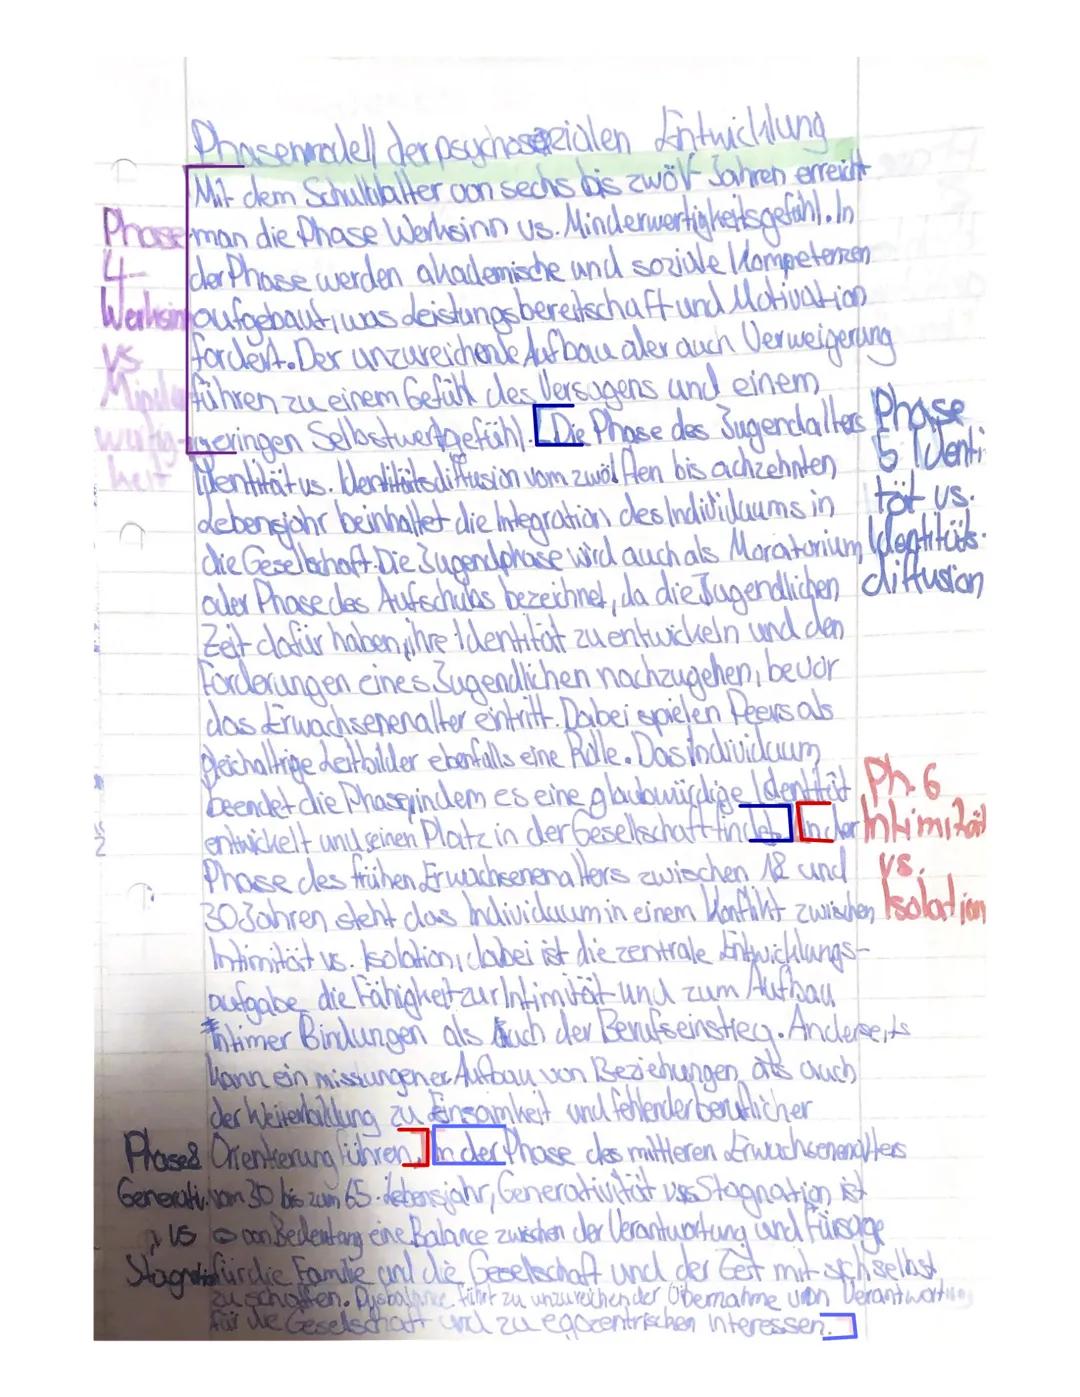 Phasenmodell der psychosozialen Entwicklung
Mit dem Schulalter von sechs bis zwölf Jahren erreicht
Phase man die Phase Werksinn vs. Minderwertigkeitsgefühl. In
4- der Phase werden akademische und soziale Kompetenzen
Werksinn aufgebaut, was Leistungsbereitschaft und Motivation
vs. fördert. Der unzureichende Aufbau aber auch Verweigerung
Minder führen zu einem Gefühl des Versagens und einem
wertig- geringen Selbstwertgefühl. Die Phase des Jugendalters
keit
Phase
5 Identi
tät vs.
Identitäts-
diffusion
Identität vs. Identitätsdiffusion vom zwölften bis achzehnten
Lebensjahr beinhaltet die Integration des Individuums in
die Gesellschaft. Die Jugendphase wird auch als Moratorium
oder Phase des Aufschubs bezeichnet, da die Jugendlichen
Zeit dafür haben, ihre Identität zu entwickeln und den
Forderungen eines Jugendlichen nachzugehen, bevor
das Erwachsenenalter eintritt. Dabei spielen Peers als
gleichaltrige Leitbilder ebenfalls eine Rolle. Das Individuum
beendet die Phase, indem es eine glaubwürdige Identität
entwickelt und seinen Platz in der Gesellschaft findet. In der
Ph. 6
Intimität
vs.
Isolation
Phase des frühen Erwachsenenalters zwischen 18 und
30 Jahren steht das Individuum in einem Konflikt zwischen
Intimität vs. Isolation, dabei ist die zentrale Entwicklungs-
aufgabe die Fähigkeit zur Intimität und zum Aufbau
intimer Bindungen als auch der Berufseinstieg. Anderseits
kann ein misslungener Aufbau von Beziehungen als auch
der Weiterbildung zu Einsamkeit und fehlender beruflicher
Orientierung führen. In der Phase des mittleren Erwachsenenalters
Phase
Generativ.
vs
Stagnation
vom 30 bis zum 65. Lebensjahr, Generativität vs. Stagnation ist
von Bedeutung eine Balance zwischen der Verantwortung und Fürsorge
für die Familie und die Gesellschaft und der Zeit mit sich selbst
zu schaffen. Dysbalance führt zu unzureichender Übernahme von Verantwortung
für die Gesellschaft und zu egozentrischen Interessen.